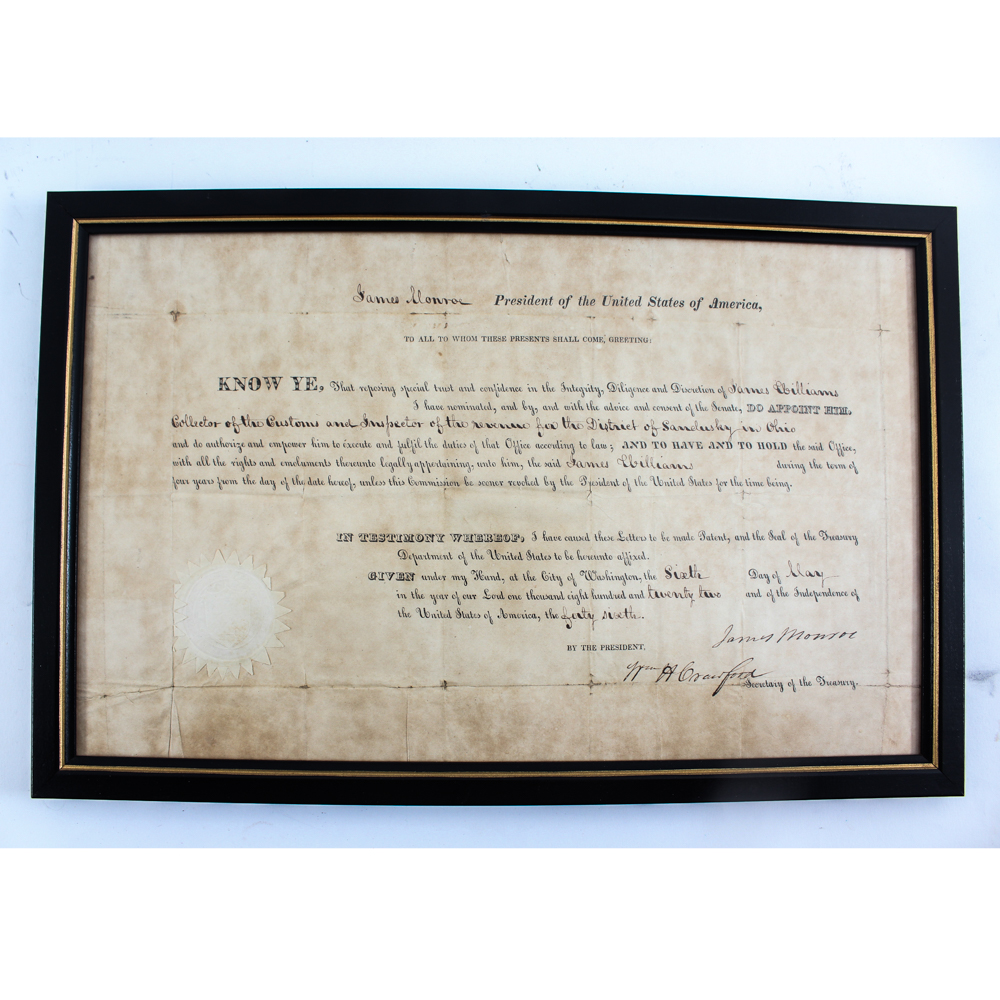 James Monroe President of the United States of America,
TO ALL TO WHOM THESE PRESENTS SHALL COME, GREETING:
KNOW YE, That reposing special trust and confidence in the Integrity, Diligence and Discretion of James Williams
I have nominated, and by, and with the advice and consent of the Senate, DO APPOINT HIM,
Collector of the Customs and Inspector of the revenue for the District of Sandusky in Ohio
and do authorize and empower him to execute and fulfil the duties of that Office according to law; AND TO HAVE AND TO HOLD the said Office,
with all the rights and emoluments thereunto legally appertaining, unto him, the said James Williams during the term of
four years from the day of the date hereof, unless this Commission be sooner revoked by the President of the United States for the time being.
IN TESTIMONY WHEREOF, I have caused these Letters to be made Patent, and the Seal of the Treasury
Department of the United States to be hereunto affixed.
GIVEN under my Hand, at the City of Washington, the Sixth Day of May
in the year of our Lord one thousand eight hundred and twenty two and of the Independence of
the United States of America, the forty sixth.
James Monroe
BY THE PRESIDENT,
Wm H Crawford
Secretary of the Treasury.